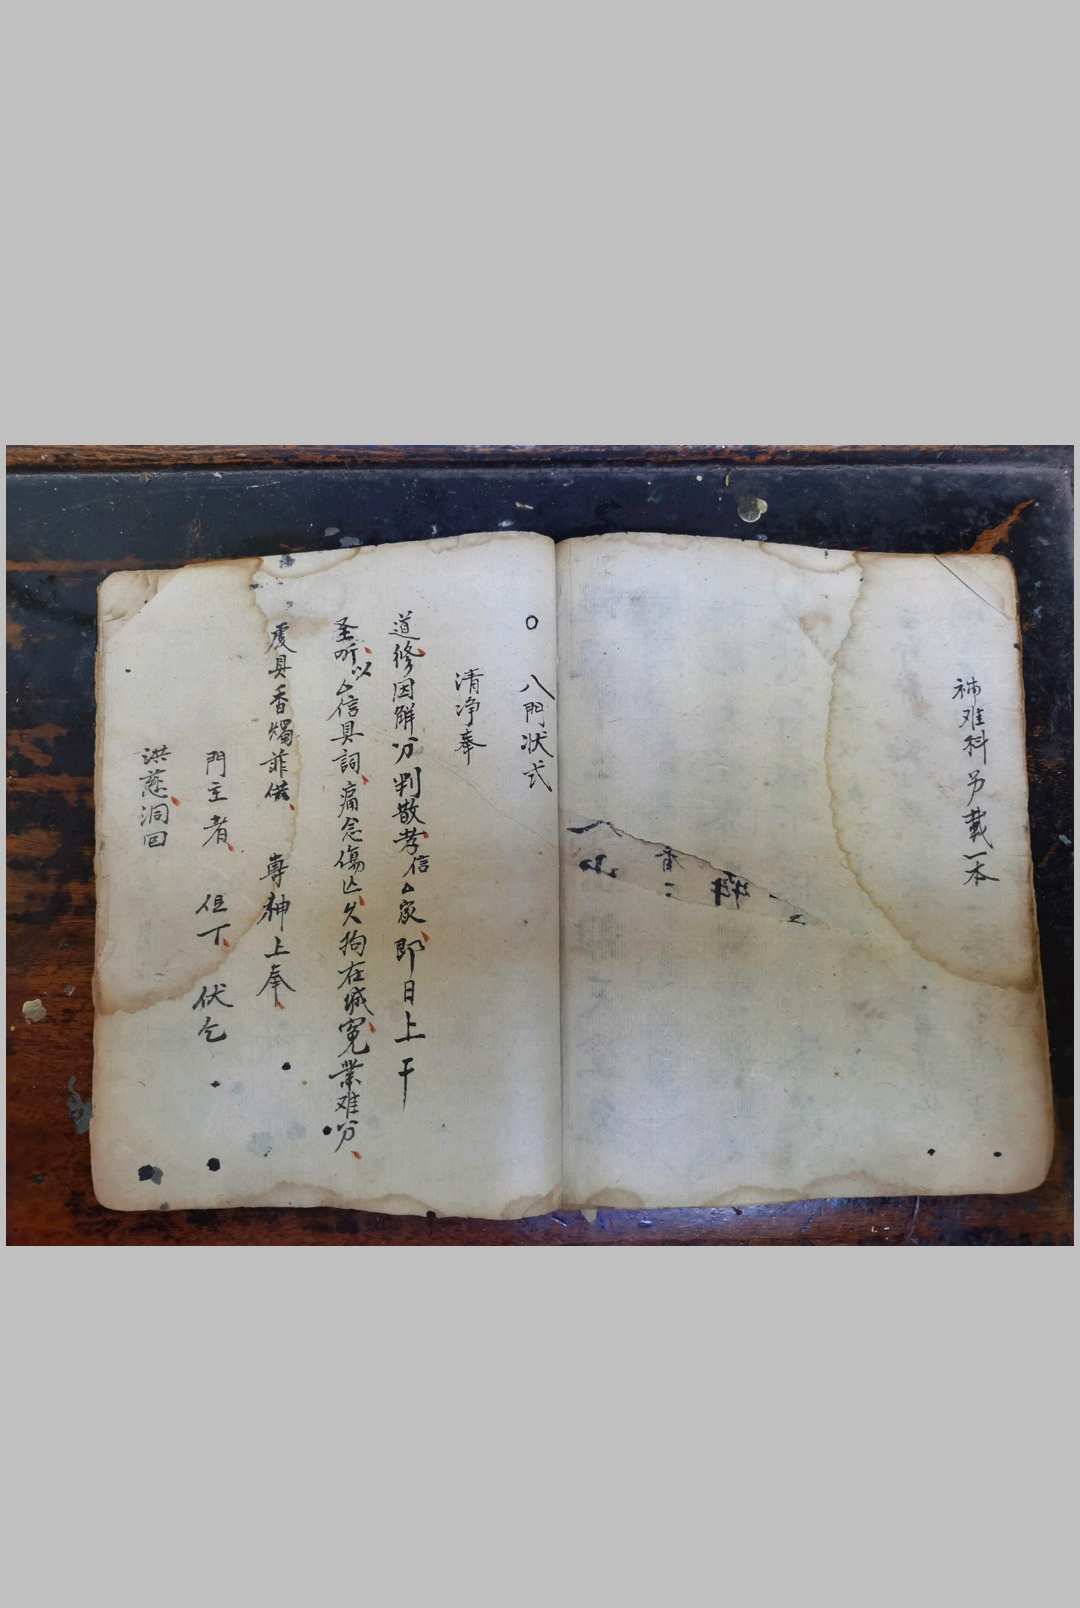 补难科另載一本
香
○ 八門状式
清净奉
道修因解分判散孝信厶家即日上干
圣听以厶信具詞痛念傷亡久拘在城冤業难分
虔具香燭菲儀 專神上奉
門主者 但丁 伏乞
洪慈洞回